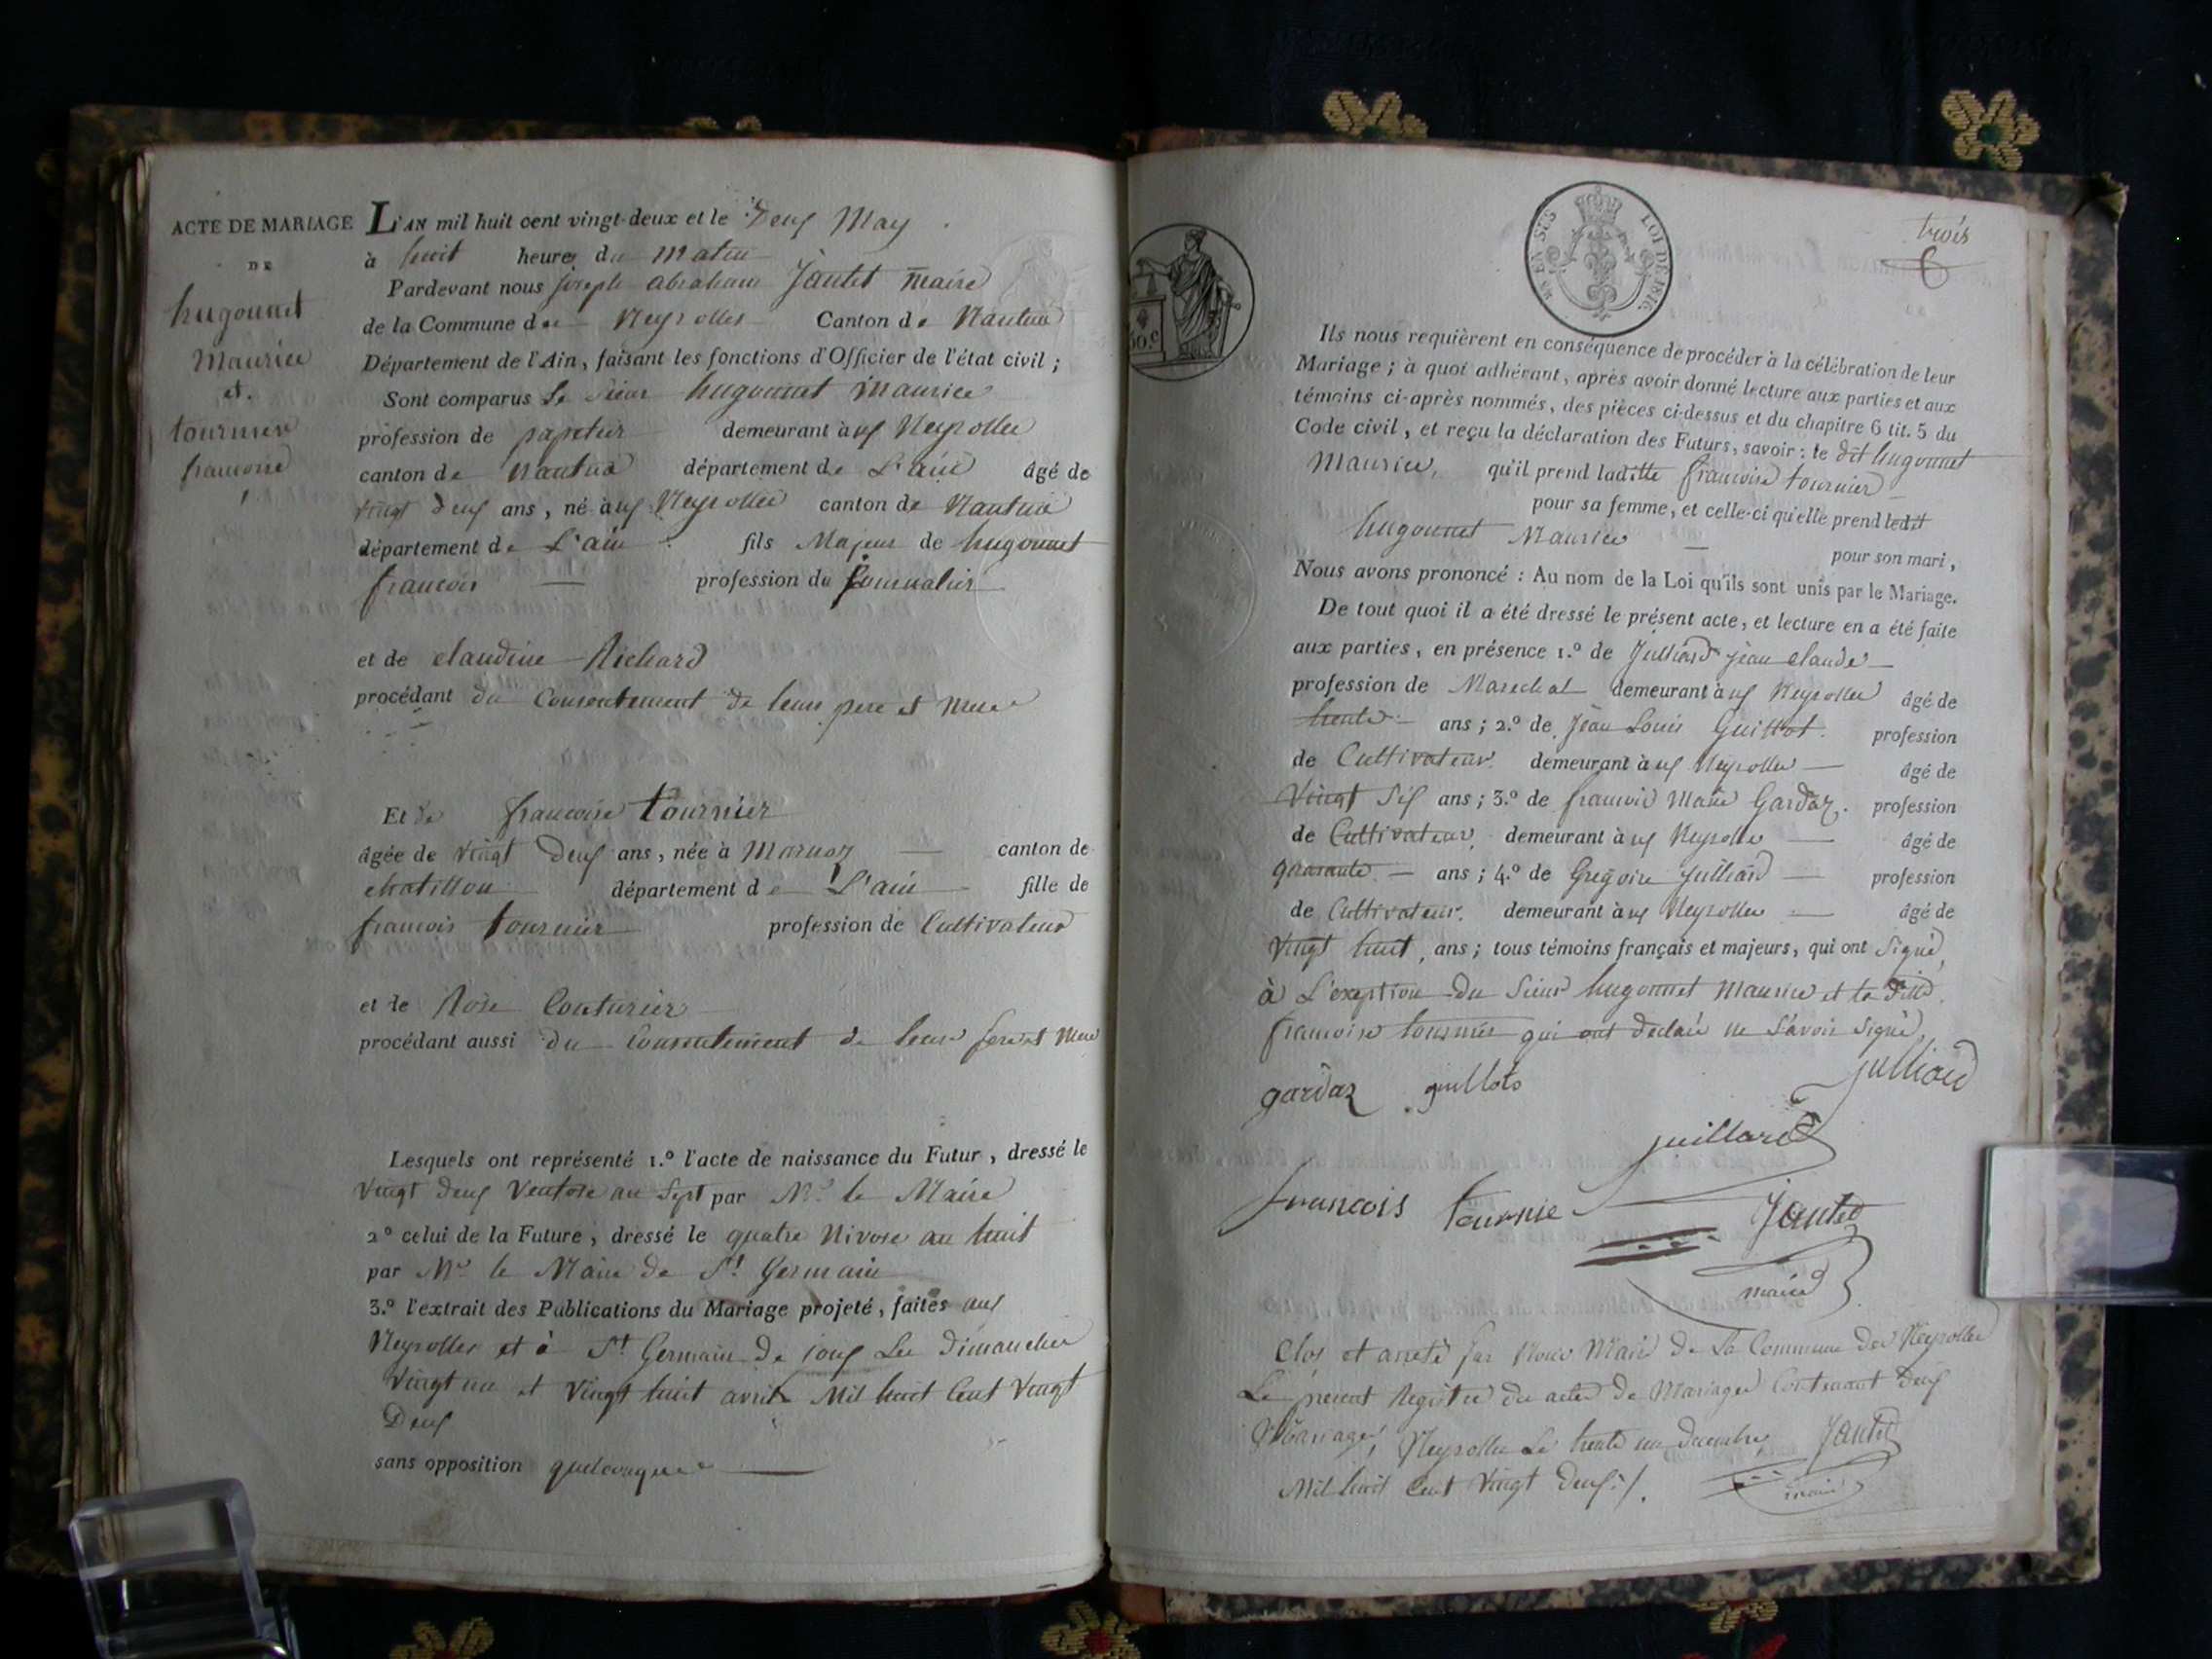 ACTE DE MARIAGE
DE
hugonnet
Maurice
et.
tournier
francoise
L'AN mil huit cent vingt-deux et le Deux May
à huit heures du matin
Pardevant nous joseph abraham Jantet maire
de la Commune des Neyrolles Canton de Nantua
Département de l'Ain, faisant les fonctions d'Officier de l'état civil ;
Sont comparus Le Sieur hugonnet maurice
profession de papetier demeurant aux Neyrolles
canton de Nantua département de L'ain âgé de
vingt deux ans, né aux Neyrolles canton de Nantua
département de L'ain fils Majeur de hugonnet
francois profession de journalier
et de claudine Richard
procédant du Consentement de leurs pere et Mere
Et de francoise tournier
âgée de vingt deux ans, née à Marnoz canton de
chatillon département de L'ain fille de
francois tournier profession de Cultivateur
et de Rose Couturier
procédant aussi du Consentement de leurs pere et Mere
Lesquels ont représenté 1.º l'acte de naissance du Futur, dressé le
vingt deux Ventose an Sept par Mr le Maire
2º celui de la Future, dressé le quatre Nivose an huit
par Mr le Maire de St Germain
3.º l'extrait des Publications du Mariage projeté, faites aux
Neyrolles et à St Germain de joux Les dimanches
vingt un et vingt huit avril Mil huit Cent vingt
Deux
sans opposition quelconque
LOI DE 1816.
EN SUS
50.c
trois
6
Ils nous requièrent en conséquence de procéder à la célébration de leur
Mariage ; à quoi adhérant, après avoir donné lecture aux parties et aux
témoins ci-après nommés, des pièces ci-dessus et du chapitre 6 tit. 5 du
Code civil, et reçu la déclaration des Futurs, savoir : le dit hugonnet
Maurice, qu'il prend laditte francoise tournier
pour sa femme, et celle-ci qu'elle prend ledit
hugonnet Maurice pour son mari,
Nous avons prononcé : Au nom de la Loi qu'ils sont unis par le Mariage.
De tout quoi il a été dressé le présent acte, et lecture en a été faite
aux parties, en présence 1.º de Julliard jean claude
profession de Marechal demeurant aux Neyrolles âgé de
trente ans ; 2.º de Jean Louis Guillot. profession
de Cultivateur. demeurant aux Neyrolles âgé de
Vingt Six ans ; 3.º de francois Marie Gardaz. profession
de Cultivateur, demeurant aux Neyrolles âgé de
quarante ans ; 4.º de Gregoire Julliard profession
de Cultivateur. demeurant aux Neyrolles âgé de
vingt huit, ans ; tous témoins français et majeurs, qui ont Signé,
à L'exeption du Sieur hugonnet Maurice et la ditte
francoise tournier qui ont declaré ne Savoir Signé,
gardaz guillot julliard
juillard
francois tournie Jantet
maire
Clos et arreté par Nous Maire de La Commune des Neyrolles
Le present Registre des actes de Mariages Contenant deux
Mariages, Neyrolles Le trente un decembre
Mil huit Cent vingt deux ./. Jantet
maire